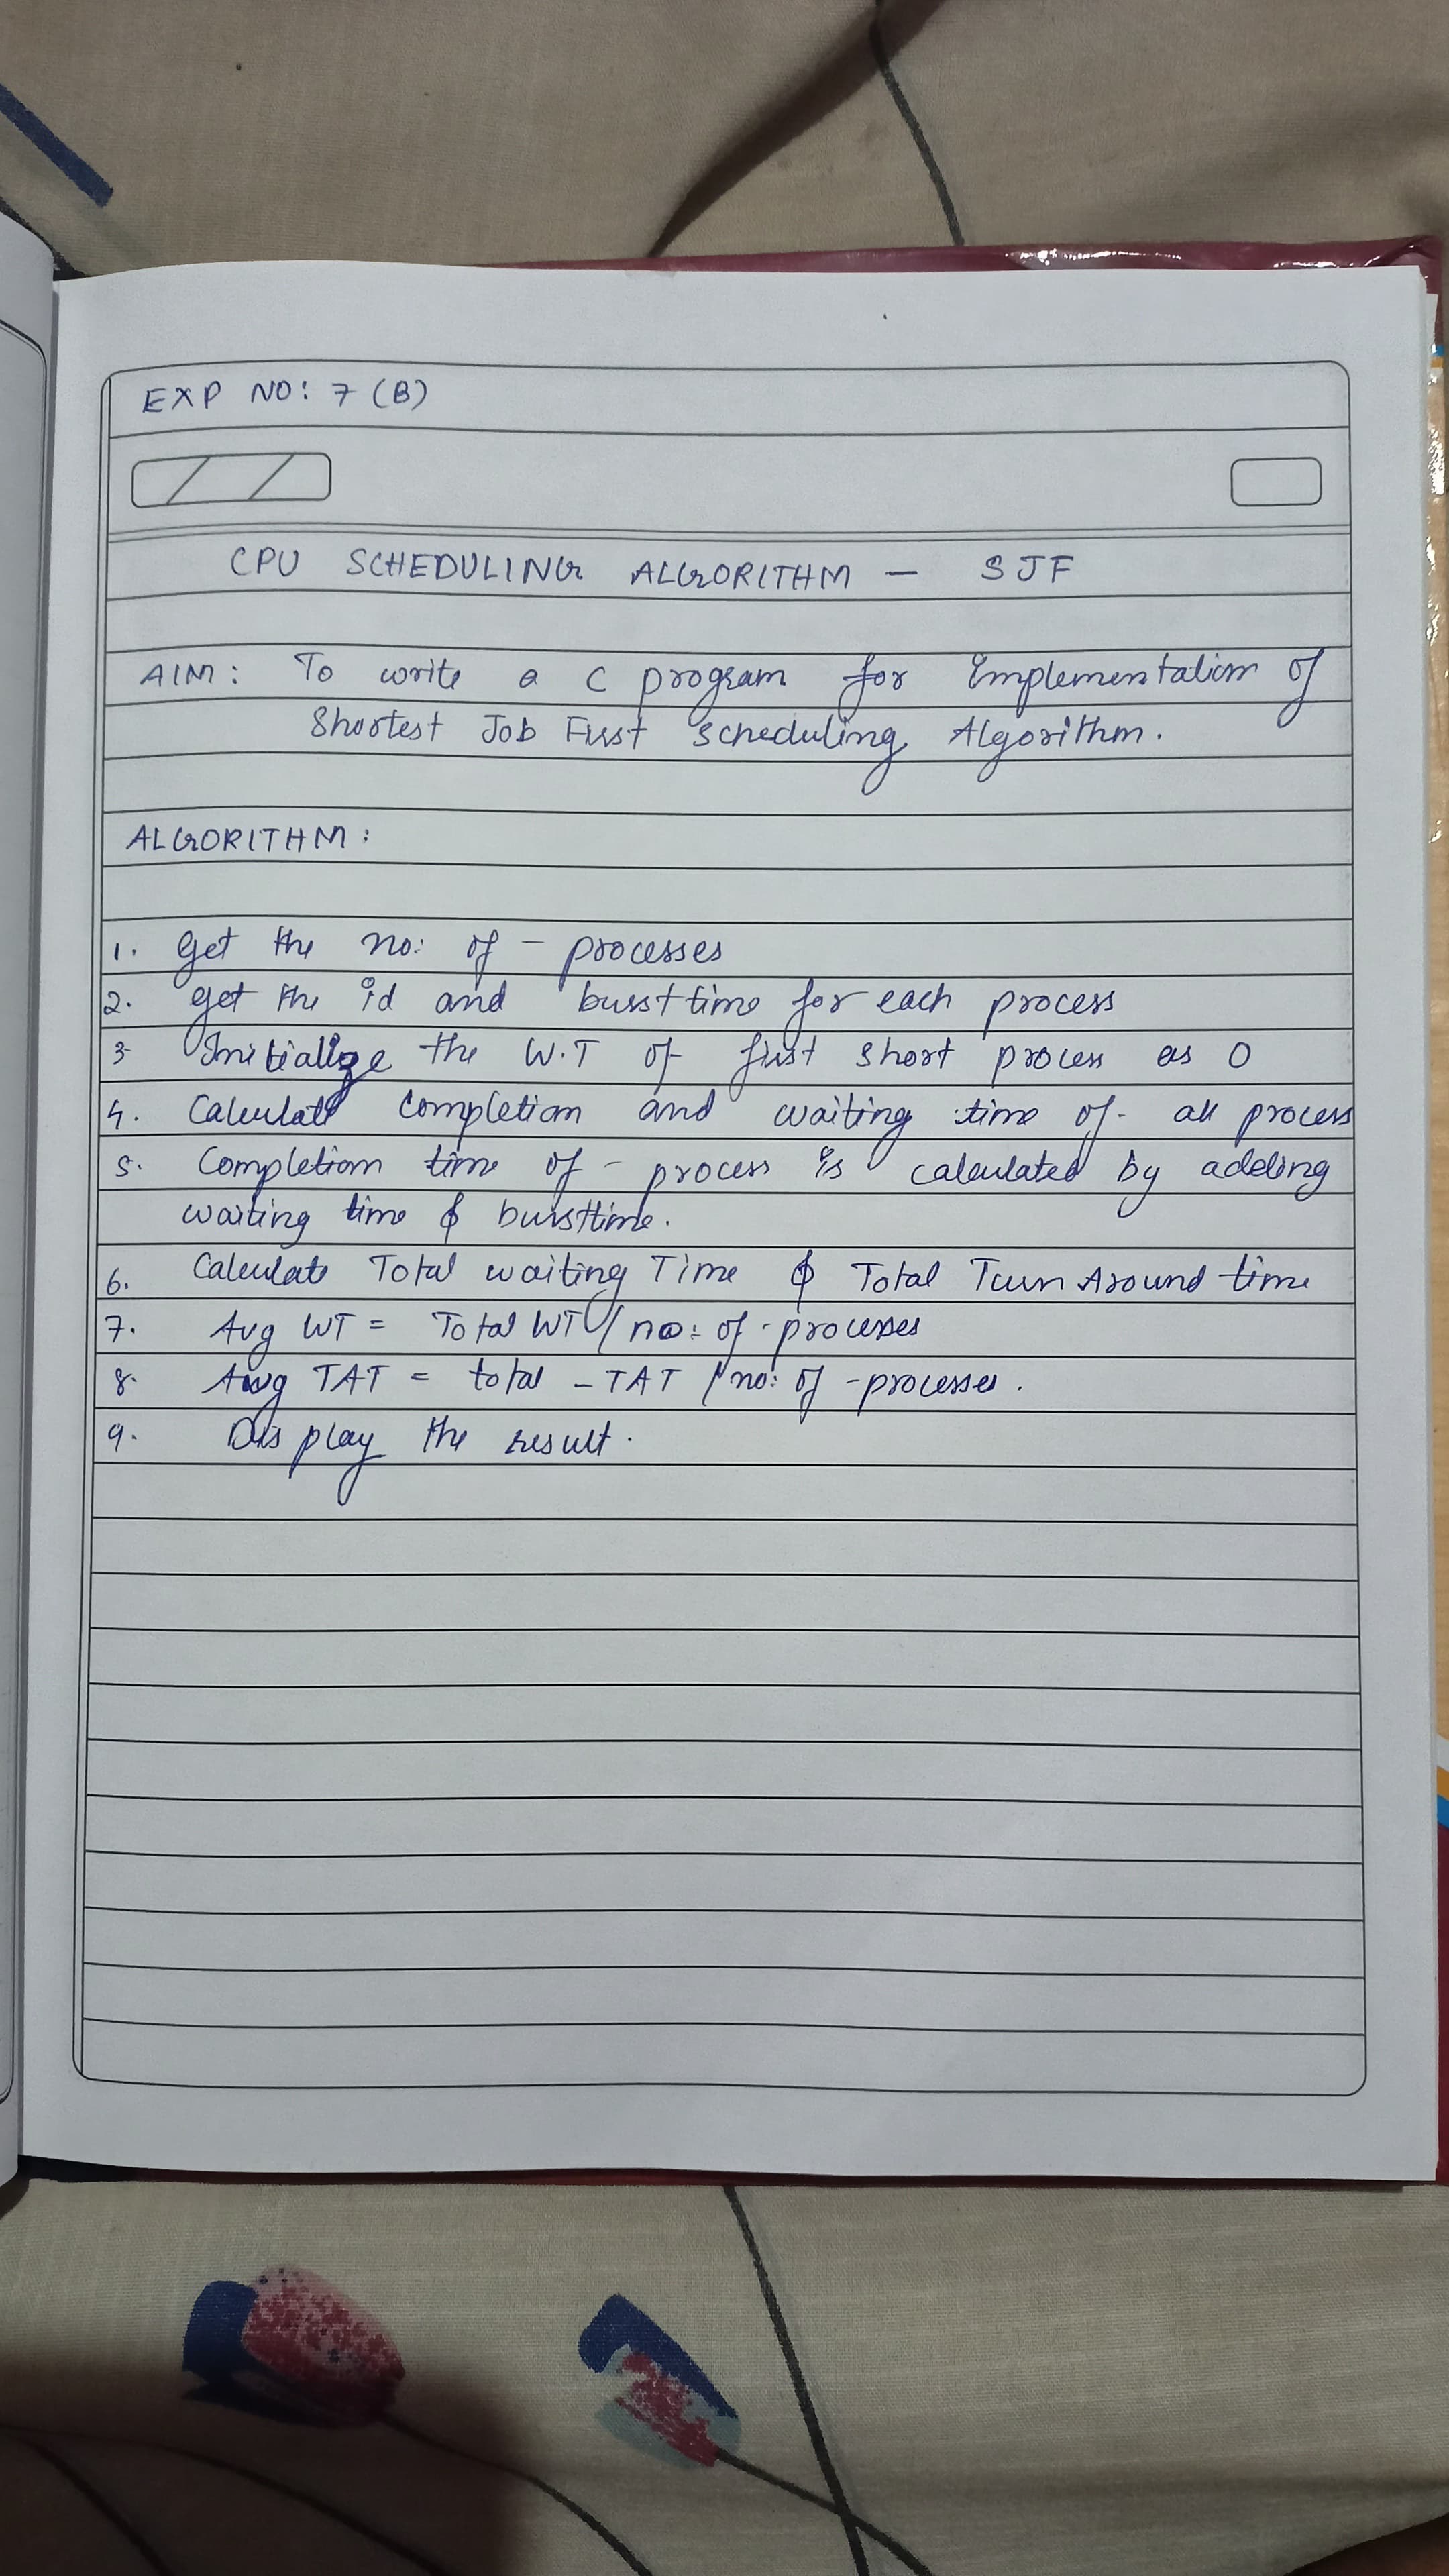 EXP NO: 7 (B)
CPU SCHEDULING ALGORITHM - SJF
AIM: To write a C program for Implementation of
Shortest Job First Scheduling Algorithm.
ALGORITHM:
1. Get the no: of - processes
2. Get the id and burst time for each process
3. Initialize the W.T of first short process as 0
4. Calculate completion and waiting time of - all process
5. Completion time of - process is calculated by adding
waiting time & bursttime.
6. Calculate Total waiting Time & Total Turn Around time
7. Avg WT = Total WT / no: of - processes
8. Avg TAT = total - TAT / no: of - processes.
9. Display the result.